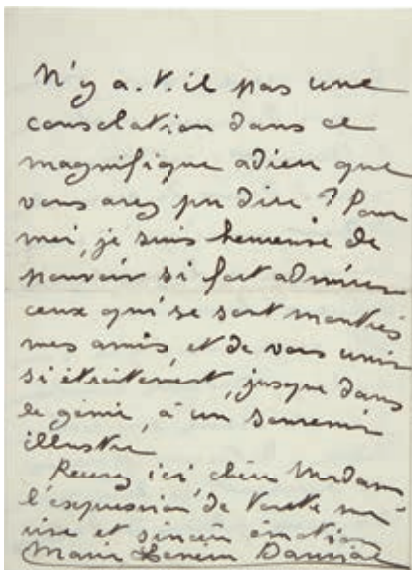 N'y a. t. il pas une
consolation dans ce
magnifique adieu que
vous avez pu dire ? Pour
moi, je suis heureuse de
pouvoir si fort admirer
ceux qui se sont montrés
mes amis, et de vous unir
si étroitement, jusque dans
le génie, à un souvenir
illustre
Recevez ici, chère Madame
l'expression de toute ma
vive et sincère émotion
Marie Lenéru